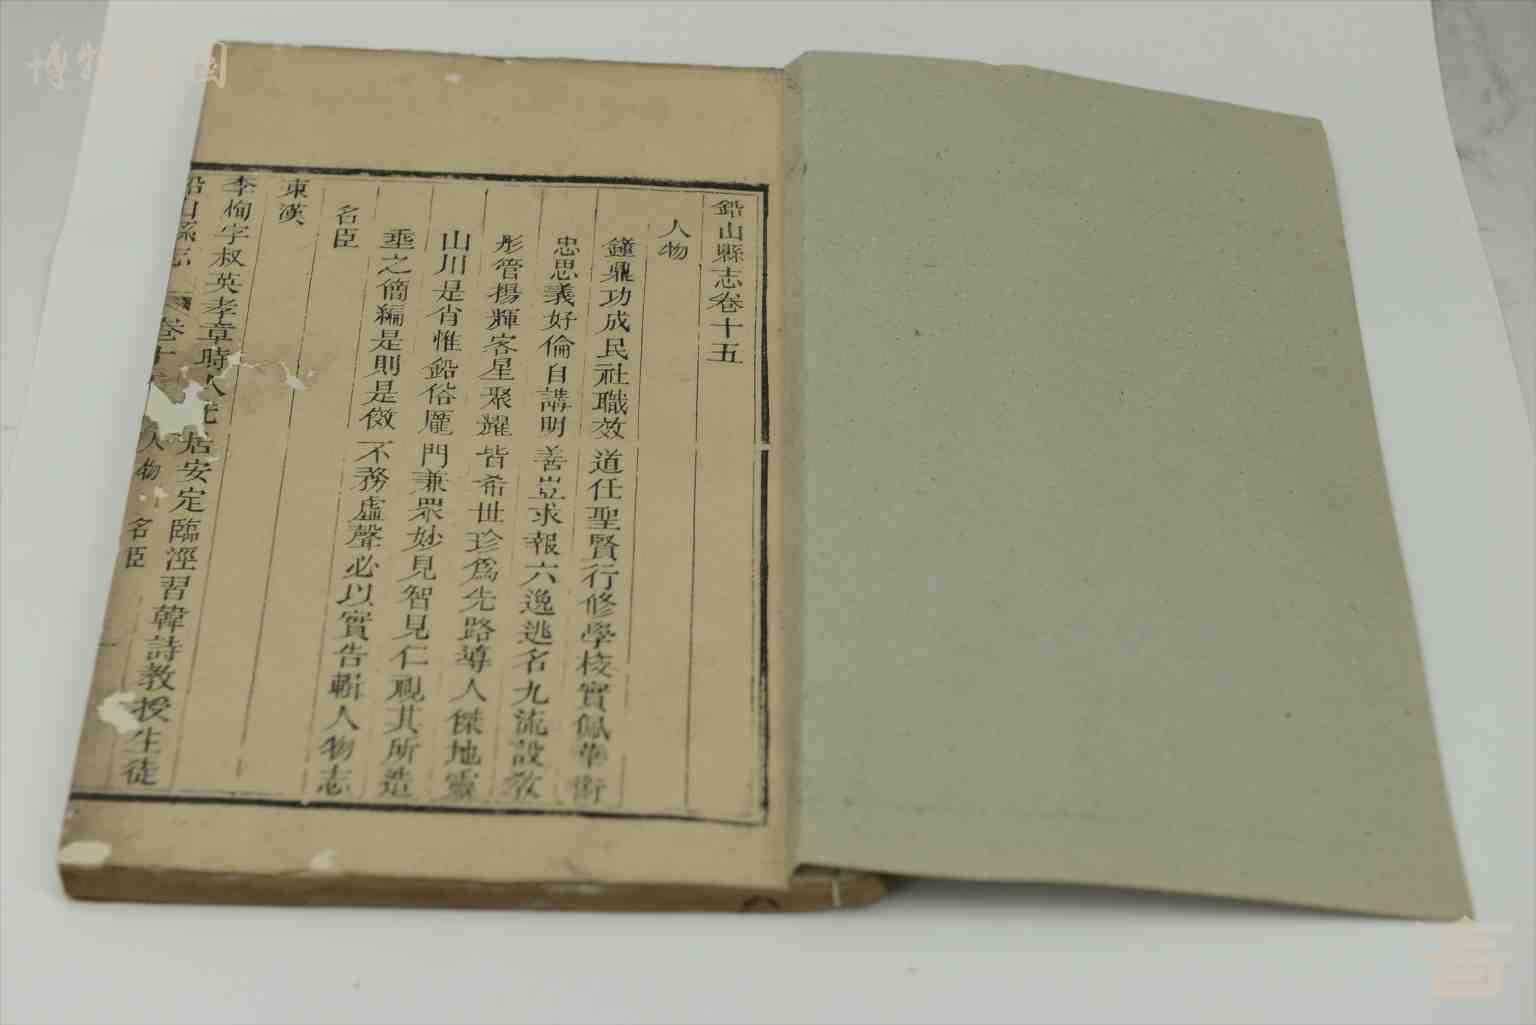 鉛山縣志卷十五
人物
鐘鼎功成民社職效道任聖賢行修學校實佩華銜
忠思義好倫自講明善豈求報六逸逃名九流設教
彤管揚輝客星聚耀皆希世珍為先路導人傑地靈
山川是肖惟鉛俗龐門兼眾妙見智見仁視其所造
垂之簡編是則是傚不務虛聲必以實告輯人物志
名臣
東漢
李恂字叔英孝章時人 居安定臨涇習韓詩教授生徒
鉛山縣志 卷十 人物 名臣 一
博物 園